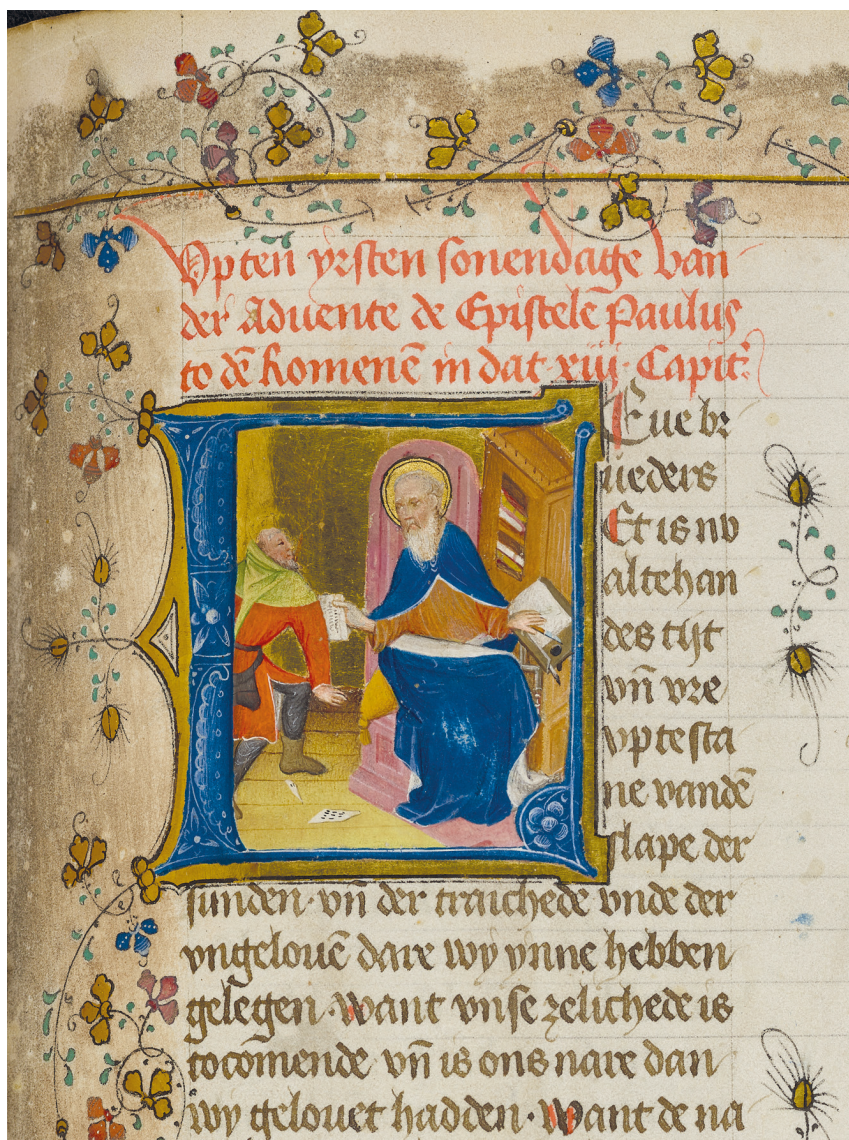 Vpten yrsten sonendage van
der Aduente de Epistele Paulus
to dē Romenē in dat xiij Capit
Leue br
ueders
Et is nv
altehan
des tijt
vn̄ vre
vp te sta
ne vandē
slape der
sunden· vn̄ der traichede vnde der
vngelouē dare wy ynne hebben
gelegen· want vnse zelichede is
tocomende vn̄ is ons nare dan
wy gelouet hadden· Want de na